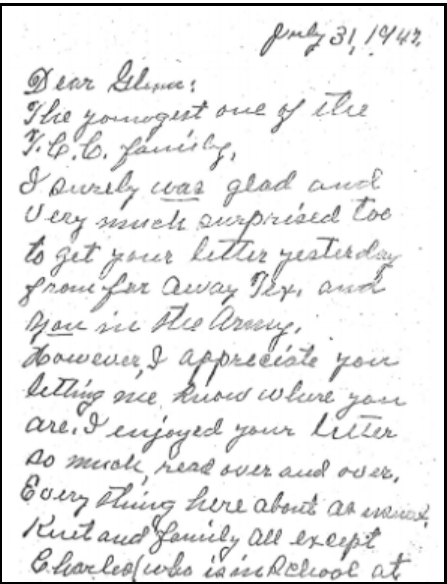 July 31, 1942
Dear Glenn:
The youngest one of the
T.C.C. family,
I surely was glad and
very much surprised too
to get your letter yesterday
from far away Tex, and
you in the Army.
However, I appreciate you
letting me know where you
are. I enjoyed your letter
so much, read over and over.
Every thing here about as usual.
Knut and family all except
Charles (who is in School at